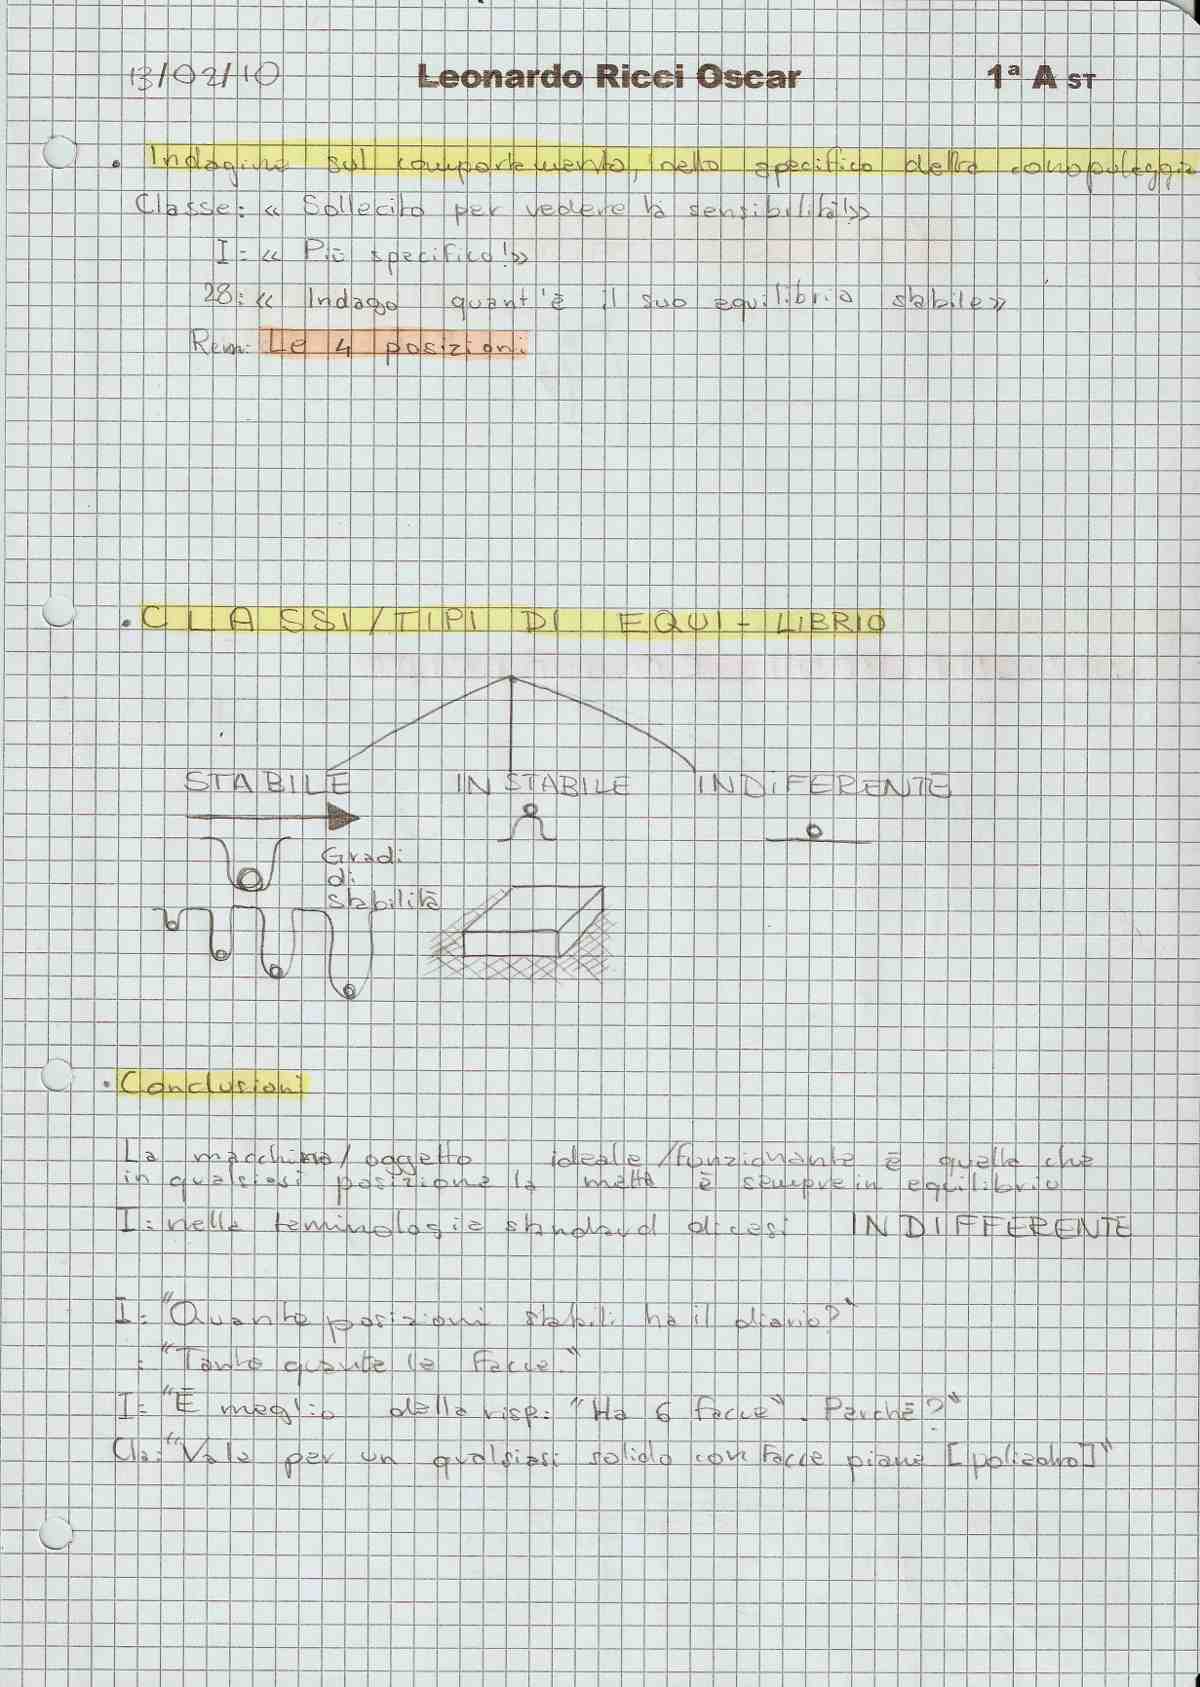 13/02/10 Leonardo Ricci Oscar 1ª A ST
• Indagine sul comportemento, nello specifico della conopuleggia
Classe: « Sollecito per vedere la sensibilità!»
I: « Più specifico!»
28: « Indago quant'è il suo equilibrio stabile»
Rem: Le 4 posizioni
• CLASSI/TIPI DI EQUI-LIBRIO
STABILE INSTABILE INDIFERENTE
Gradi
di
stabilità
• Conclusioni
La macchina/oggetto ideale/funzionante è quella che
in qualsiasi posizione la metto è sempre in equilibrio
I: nella teminologia standard dicesi INDIFFERENTE
I: "Quante posizioni stabili ha il diario?"
: "Tante quante le facce."
I: "È meglio della risp: "Ha 6 facce". Perchè?"
Cla: "Vale per un qualsiasi solido con facce piane [poliedro]"